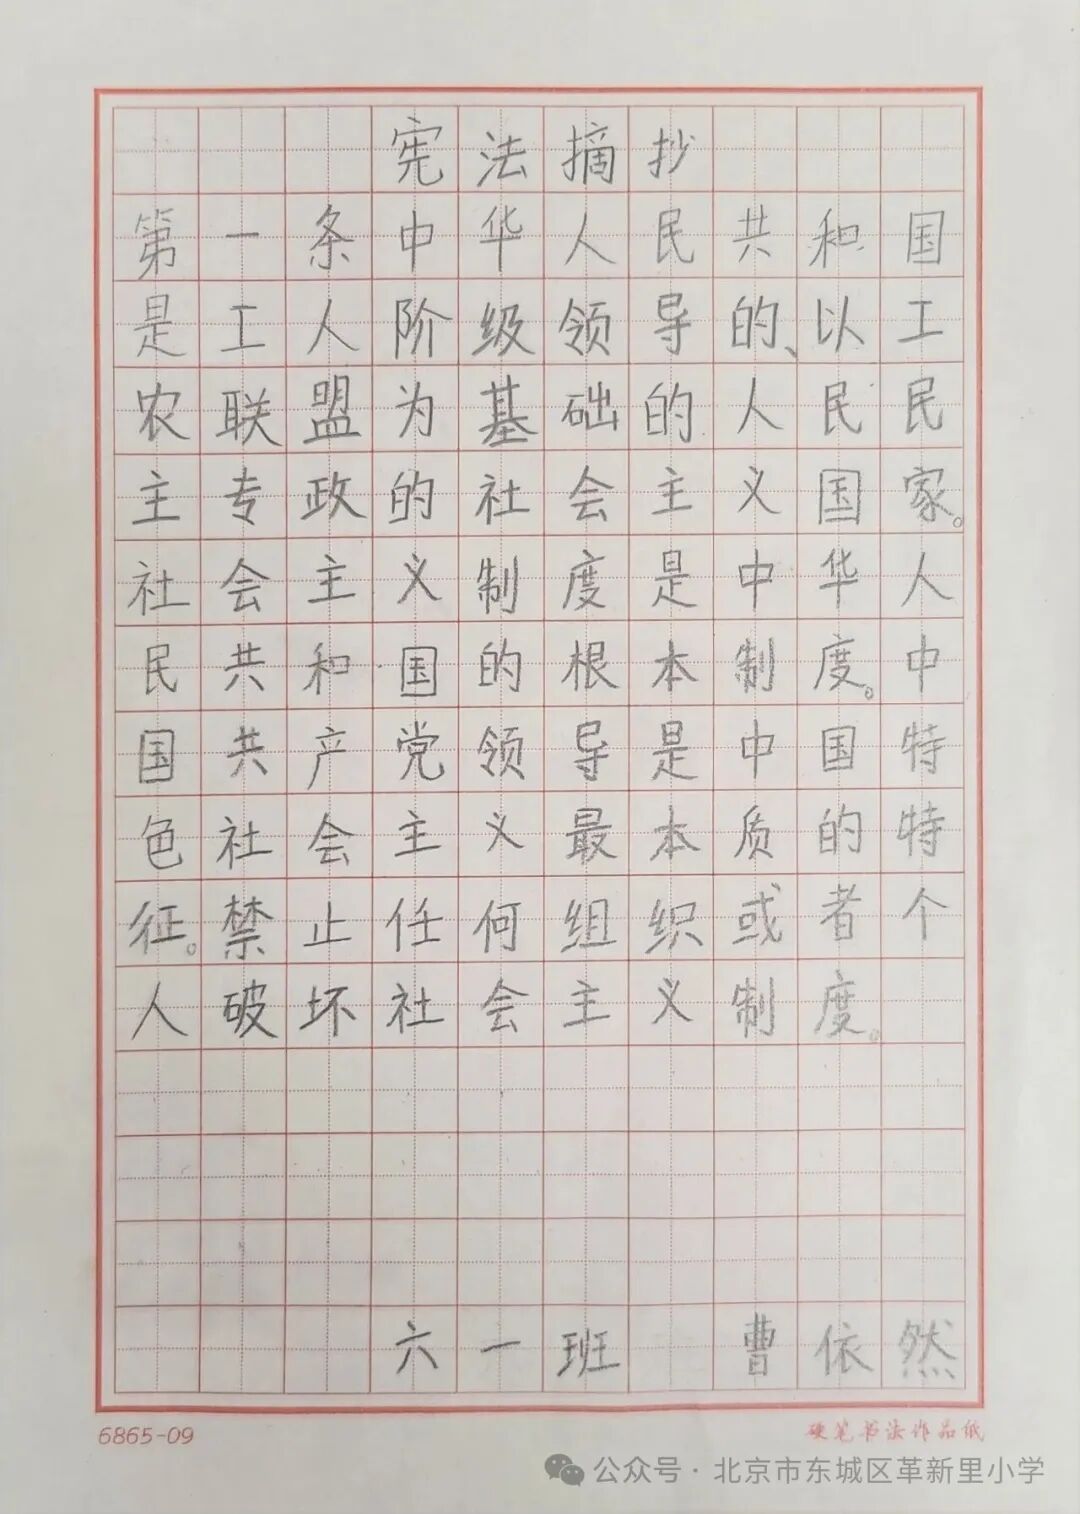 宪法摘抄
第一条中华人民共和国
是工人阶级领导的、以工
农联盟为基础的人民民
主专政的社会主义国家。
社会主义制度是中华人
民共和国的根本制度。中
国共产党领导是中国特
色社会主义最本质的特
征。禁止任何组织或者个
人破坏社会主义制度。
六一班 曹依然
6865-09 硬笔书法作品纸
公众号·北京市东城区革新里小学